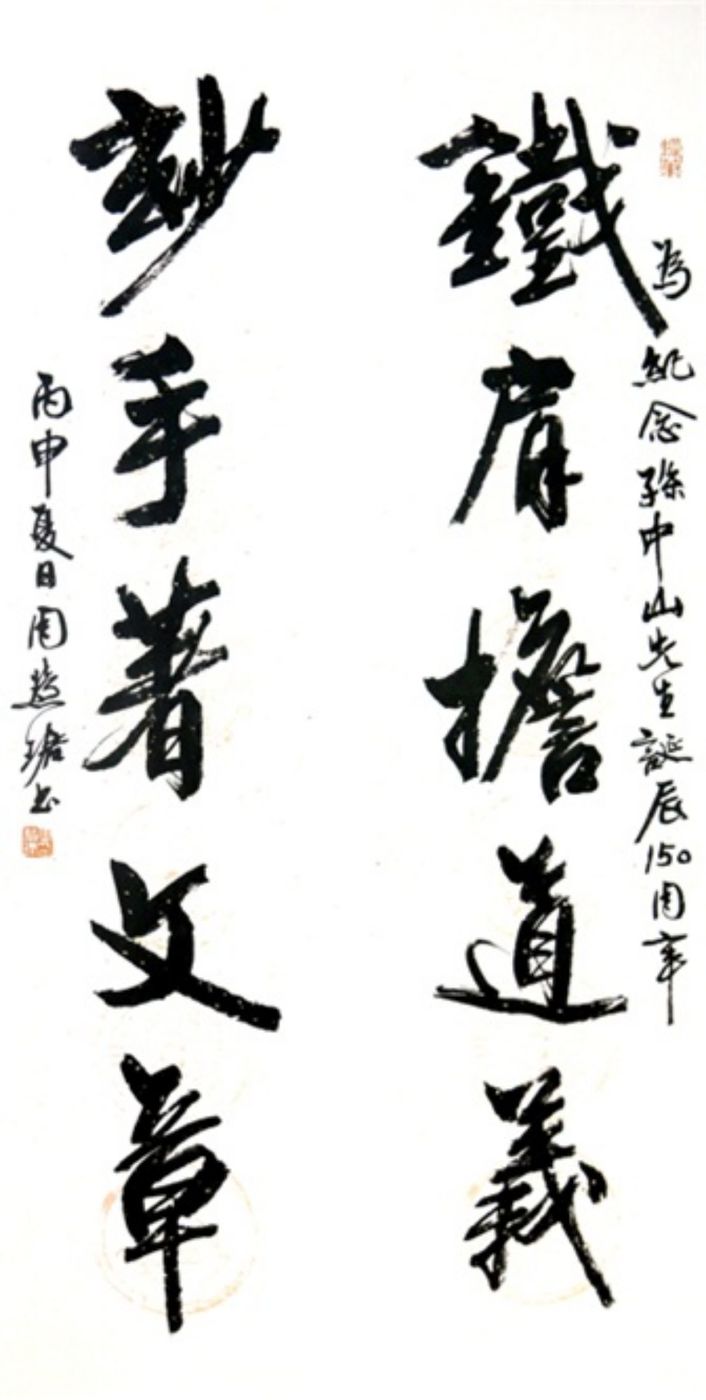 為紀念孫中山先生誕辰150周年
鐵肩擔道義
妙手著文章
丙申夏日周慧珺书